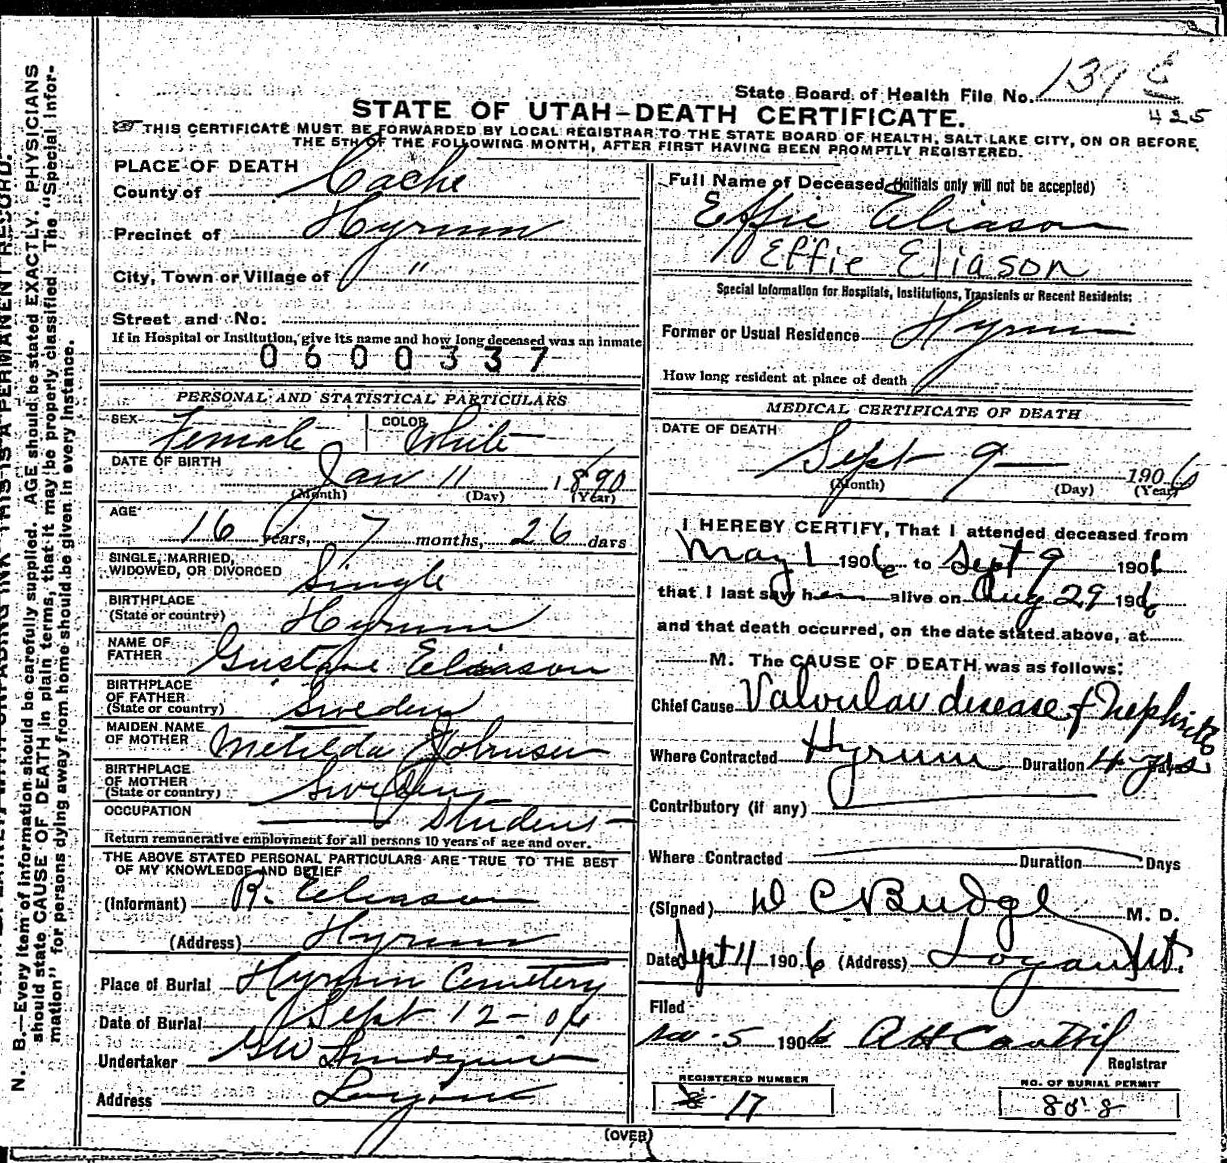 State Board of Health File No. 139 E
425
STATE OF UTAH-DEATH CERTIFICATE.
THIS CERTIFICATE MUST BE FORWARDED BY LOCAL REGISTRAR TO THE STATE BOARD OF HEALTH, SALT LAKE CITY, ON OR BEFORE
THE 5TH OF THE FOLLOWING MONTH, AFTER FIRST HAVING BEEN PROMPTLY REGISTERED.
PLACE OF DEATH
County of Cache
Precinct of Hyrum
City, Town or Village of "
Street and No.
If in Hospital or Institution, give its name and how long deceased was an inmate
0600337
PERSONAL AND STATISTICAL PARTICULARS
SEX Female COLOR White
DATE OF BIRTH Jan 11 1890
(Month) (Day) (Year)
AGE 16 Years, 7 months, 26 days
SINGLE, MARRIED,
WIDOWED, OR DIVORCED Single
BIRTHPLACE
(State or country) Hyrum
NAME OF
FATHER Gustave Eliason
BIRTHPLACE
OF FATHER
(State or country) Sweden
MAIDEN NAME
OF MOTHER Metilda Johnsen
BIRTHPLACE
OF MOTHER
(State or country) Sweden
OCCUPATION Student
Return remunerative employment for all persons 10 years of age and over.
THE ABOVE STATED PERSONAL PARTICULARS ARE TRUE TO THE BEST
OF MY KNOWLEDGE AND BELIEF
(Informant) R. Eliason
(Address) Hyrum
Place of Burial Hyrum Cemetery
Date of Burial Sept 12-06
Undertaker GW
Address Logan
Full Name of Deceased (Initials only will not be accepted)
Effie Eliason
Effie Eliason
Special Information for Hospitals, Institutions, Transients or Recent Residents:
Former or Usual Residence Hyrum
How long resident at place of death
MEDICAL CERTIFICATE OF DEATH
DATE OF DEATH
Sept 9 1906
(Month) (Day) (Year)
I HEREBY CERTIFY, That I attended deceased from
May 1 1906 to Sept 9 1906
that I last saw her alive on Aug 29 1906
and that death occurred, on the date stated above, at
M. The CAUSE OF DEATH was as follows:
Chief Cause Valvular disease & Nephritis
Where Contracted Hyrum Duration 4 yrs Days
Contributory (if any)
Where Contracted Duration Days
(Signed) D C Budge M. D.
Date Sept 11 1906 (Address) Logan Ut.
Filed
Nov 5 1906 Registrar
REGISTERED NUMBER
17
NO. OF BURIAL PERMIT
808
(OVER)
N. B.—Every item of information should be carefully supplied. AGE should be stated EXACTLY. PHYSICIANS
should state CAUSE OF DEATH in plain terms, that it may be properly classified. The "Special Infor-
mation" for persons dying away from home should be given in every instance.